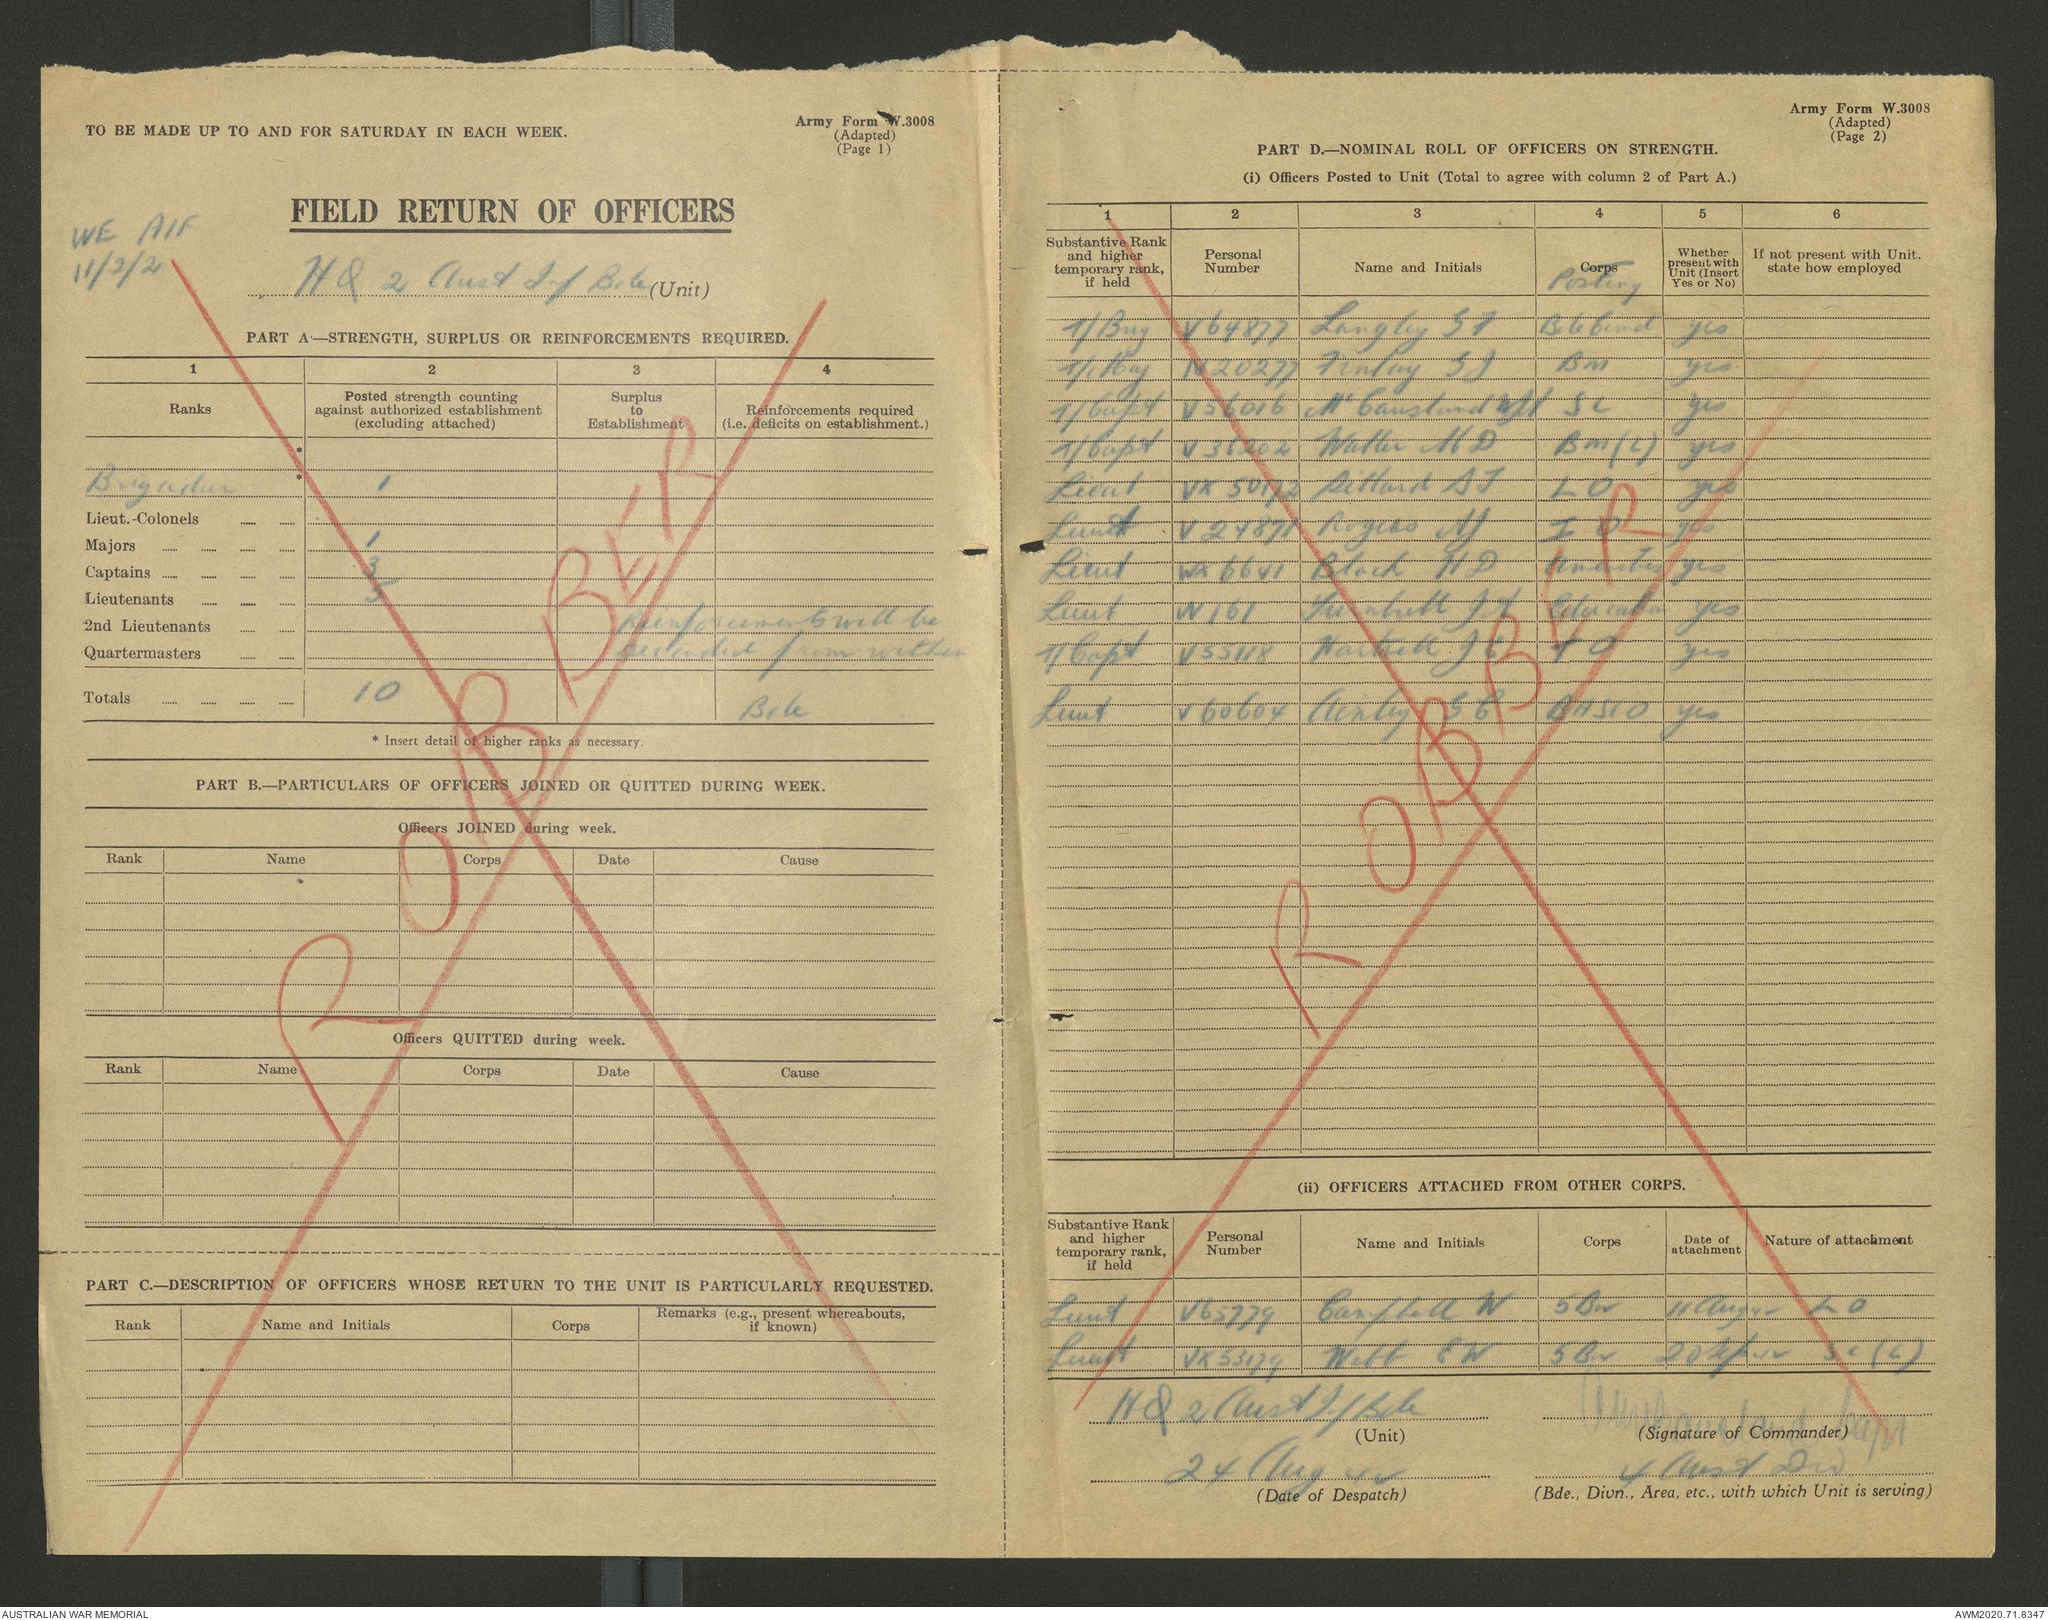 TO BE MADE UP TO AND FOR SATURDAY IN EACH WEEK.
Army Form W.3008
(Adapted)
(Page 1)
FIELD RETURN OF OFFICERS
WE AIF
11/2/2
HQ 2 Aust Inf Bde (Unit)
PART A.—STRENGTH, SURPLUS OR REINFORCEMENTS REQUIRED.
1 2 3 4
Ranks
Posted strength counting against authorized establishment (excluding attached)
Surplus to Establishment
Reinforcements required (i.e. deficits on establishment.)
*
Brigadier * 1
Lieut.-Colonels
Majors 1
Captains 3
Lieutenants 5
2nd Lieutenants
Quartermasters
Reinforcements will be
seconded from within
Bde
Totals 10
* Insert detail of higher ranks as necessary.
PART B.—PARTICULARS OF OFFICERS JOINED OR QUITTED DURING WEEK.
Officers JOINED during week.
Rank Name Corps Date Cause
Officers QUITTED during week.
Rank Name Corps Date Cause
PART C.—DESCRIPTION OF OFFICERS WHOSE RETURN TO THE UNIT IS PARTICULARLY REQUESTED.
Rank Name and Initials Corps Remarks (e.g., present whereabouts, if known)
ROBBER
Army Form W.3008
(Adapted)
(Page 2)
PART D.—NOMINAL ROLL OF OFFICERS ON STRENGTH.
(i) Officers Posted to Unit (Total to agree with column 2 of Part A.)
1 2 3 4 5 6
Substantive Rank and higher temporary rank, if held
Personal Number
Name and Initials
Corps
Posting
Whether present with Unit (Insert Yes or No)
If not present with Unit. state how employed
T/Brig V64877 Langley G F Bde Comd yes
T/Maj N20277 Finlay G J BM yes
T/Capt V56016 McCausland SC yes
T/Capt V36202 Walter M D BM (L) yes
Lieut VX50172 A J LO yes
Lieut V24871 Rogers M J IO yes
Lieut WX6641 Black H D Amenities yes
Lieut N161 Turnbull J A Education yes
T/Capt V55118 Hartnell J L TO yes
Lieut V60604 Ainley G C yes
ROBBER
(ii) OFFICERS ATTACHED FROM OTHER CORPS.
Substantive Rank and higher temporary rank, if held
Personal Number
Name and Initials
Corps
Date of attachment
Nature of attachment
Lieut V65779 Campbell W 5 Bn 11 Aug 42 LO
Lieut VX53179 Webb E W 5 Bn 20 42 SC (L)
HQ 2 Aust Inf Bde
(Unit)
McCausland Capt
(Signature of Commander)
24 Aug 42
(Date of Despatch)
4 Aust Div
(Bde., Divn., Area, etc., with which Unit is serving)
AUSTRALIAN WAR MEMORIAL
AWM2020.71.8347